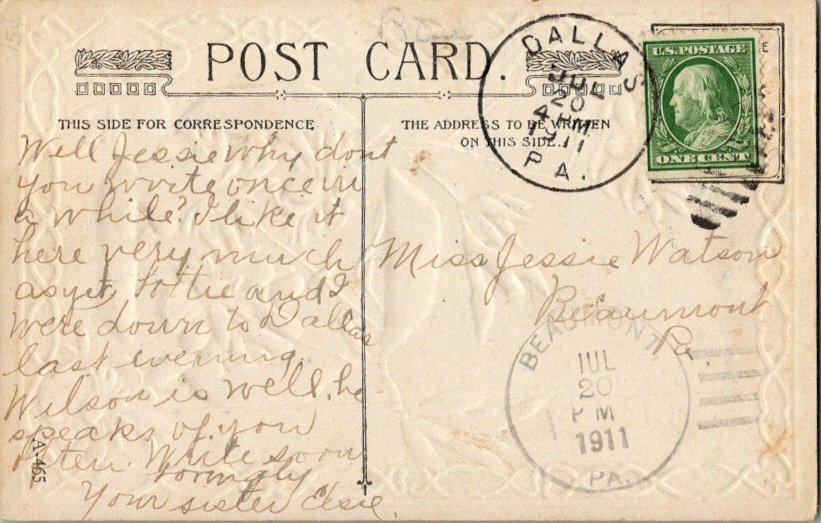 POST CARD.
THIS SIDE FOR CORRESPONDENCE
THE ADDRESS TO BE WRITTEN
ON THIS SIDE.
DALLAS
JUL
20
AM
1911
PA.
U.S. POSTAGE
ONE CENT
Well Jessie why dont
you write once in
a while? I like it
here very much
as yet, Lottie and I
were down to Dallas
last evening.
Wilson is well, he
speaks of you
often. Write soon
Lovingly
Your sister Elsie.
A-465
Miss Jessie Watson
Beaumont
Pa.
BEAUMONT
JUL
20
PM
1911
PA.